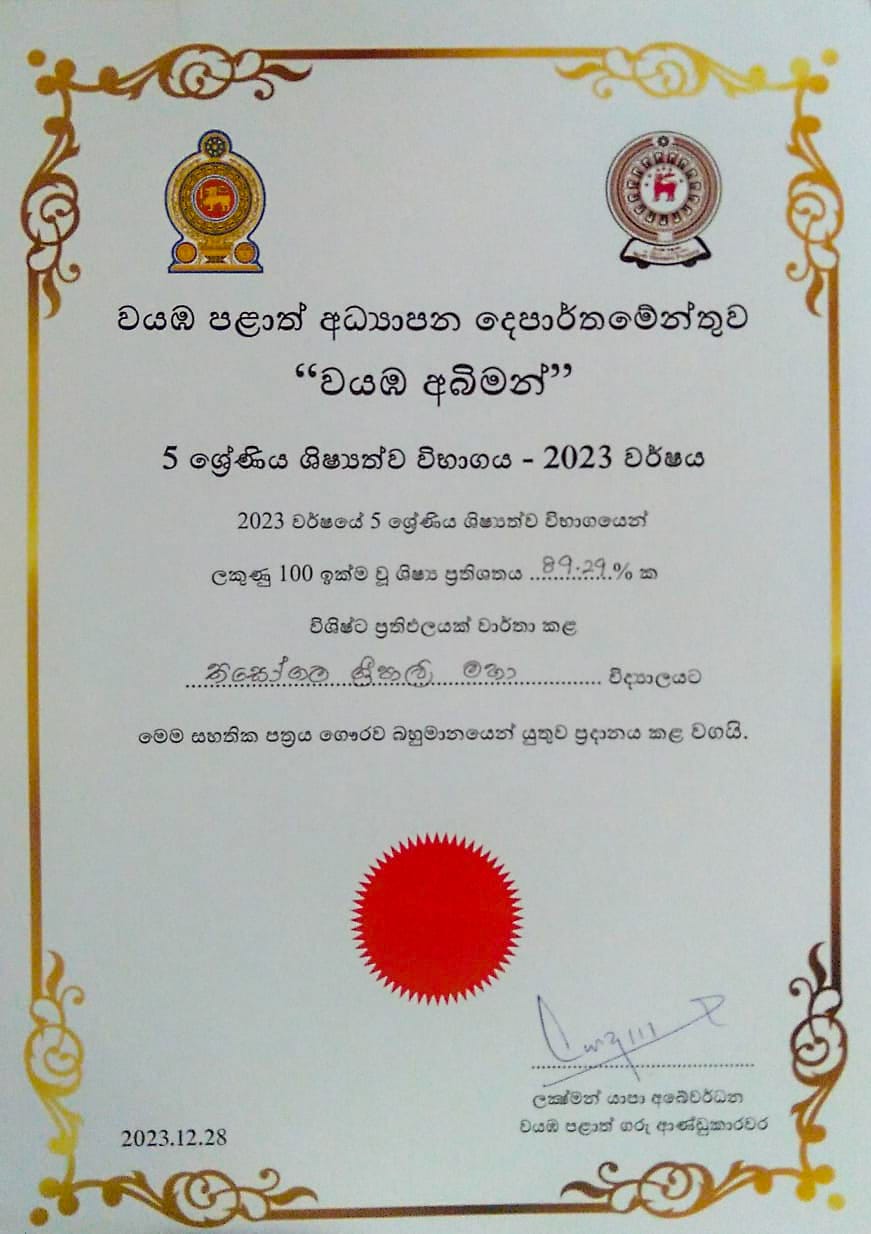 වයඹ පළාත් අධ්‍යාපන දෙපාර්තමේන්තුව
“වයඹ අබිමන්”
5 ශ්‍රේණිය ශිෂ්‍යත්ව විභාගය - 2023 වර්ෂය
2023 වර්ෂයේ 5 ශ්‍රේණිය ශිෂ්‍යත්ව විභාගයෙන්
ලකුණු 100 ඉක්ම වූ ශිෂ්‍ය ප්‍රතිශතය ..89.29.% ක
විශිෂ්ට ප්‍රතිඵලයක් වාර්තා කළ
මහා විද්‍යාලයට
මෙම සහතික පත්‍රය ගෞරව බහුමානයෙන් යුතුව ප්‍රදානය කළ වගයි.
ලක්ෂ්මන් යාපා අබේවර්ධන
වයඹ පළාත් ගරු ආණ්ඩුකාරවර
2023.12.28